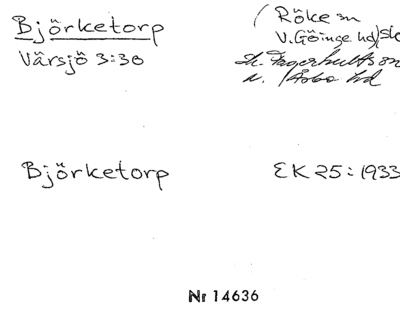 Björketorp
Vårsjö 3:30
(Röke sn
V.Göinge hd)
Fagerhults sn
N. Åsbo hd
Björketorp
EK 25:1933
Nr 14636